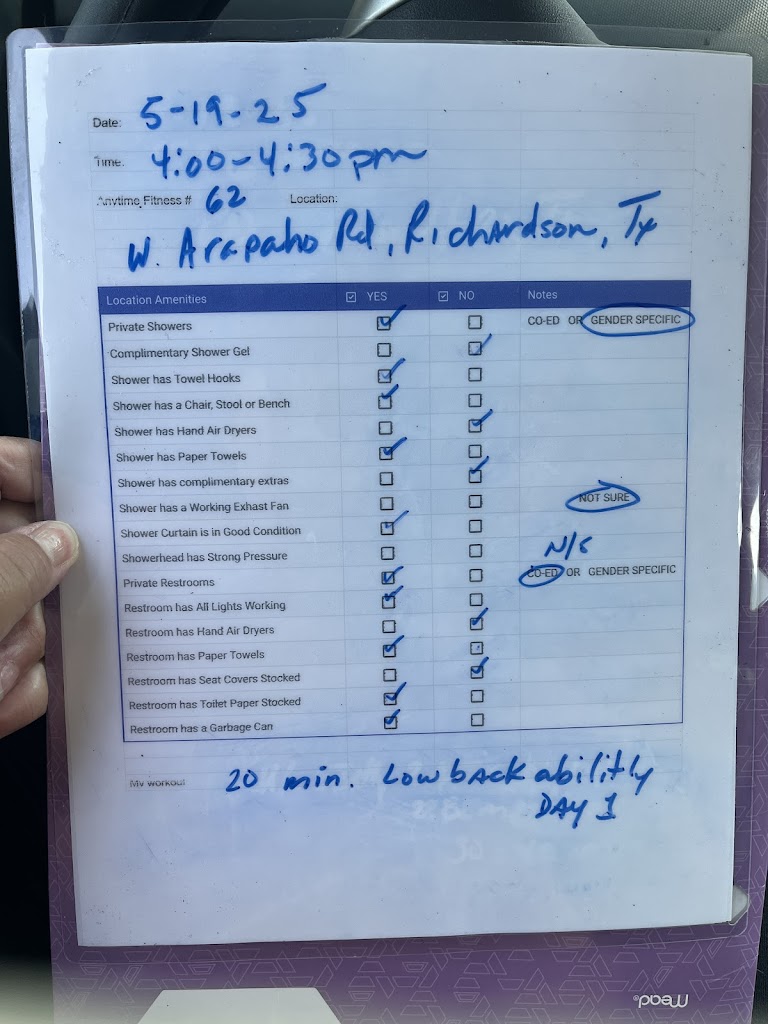 Date: 5-19-25
Time: 4:00-4:30pm
Anytime Fitness # 62 Location:
W. Arapaho Rd, Richardson, Tx
Location Amenities YES NO Notes
Private Showers CO-ED OR GENDER SPECIFIC
Complimentary Shower Gel
Shower has Towel Hooks
Shower has a Chair, Stool or Bench
Shower has Hand Air Dryers
Shower has Paper Towels
Shower has complimentary extras
Shower has a Working Exhast Fan NOT SURE
Shower Curtain is in Good Condition
Showerhead has Strong Pressure N/S
Private Restrooms CO-ED OR GENDER SPECIFIC
Restroom has All Lights Working
Restroom has Hand Air Dryers
Restroom has Paper Towels
Restroom has Seat Covers Stocked
Restroom has Toilet Paper Stocked
Restroom has a Garbage Can
My workout 20 min. Low back abilitly
DAY 1
Mead